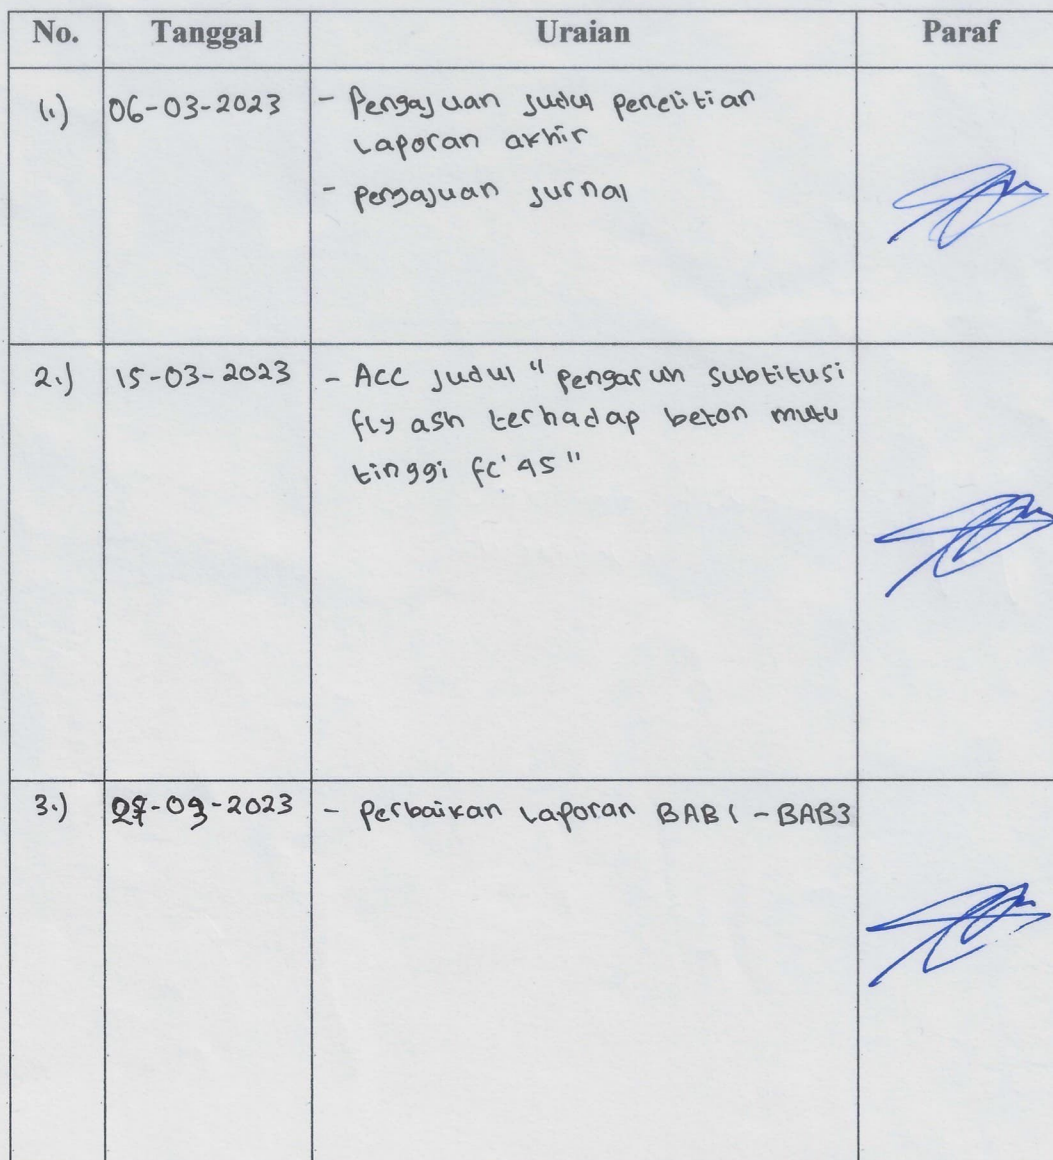 No. Tanggal Uraian Paraf
1.) 06-03-2023 - Pengajuan judul penelitian
Laporan akhir
- pengajuan jurnal
2.) 15-03-2023 - ACC judul "pengaruh subtitusi
fly ash terhadap beton mutu
tinggi fc'45"
3.) -2023 - perbaikan laporan BAB1 - BAB3